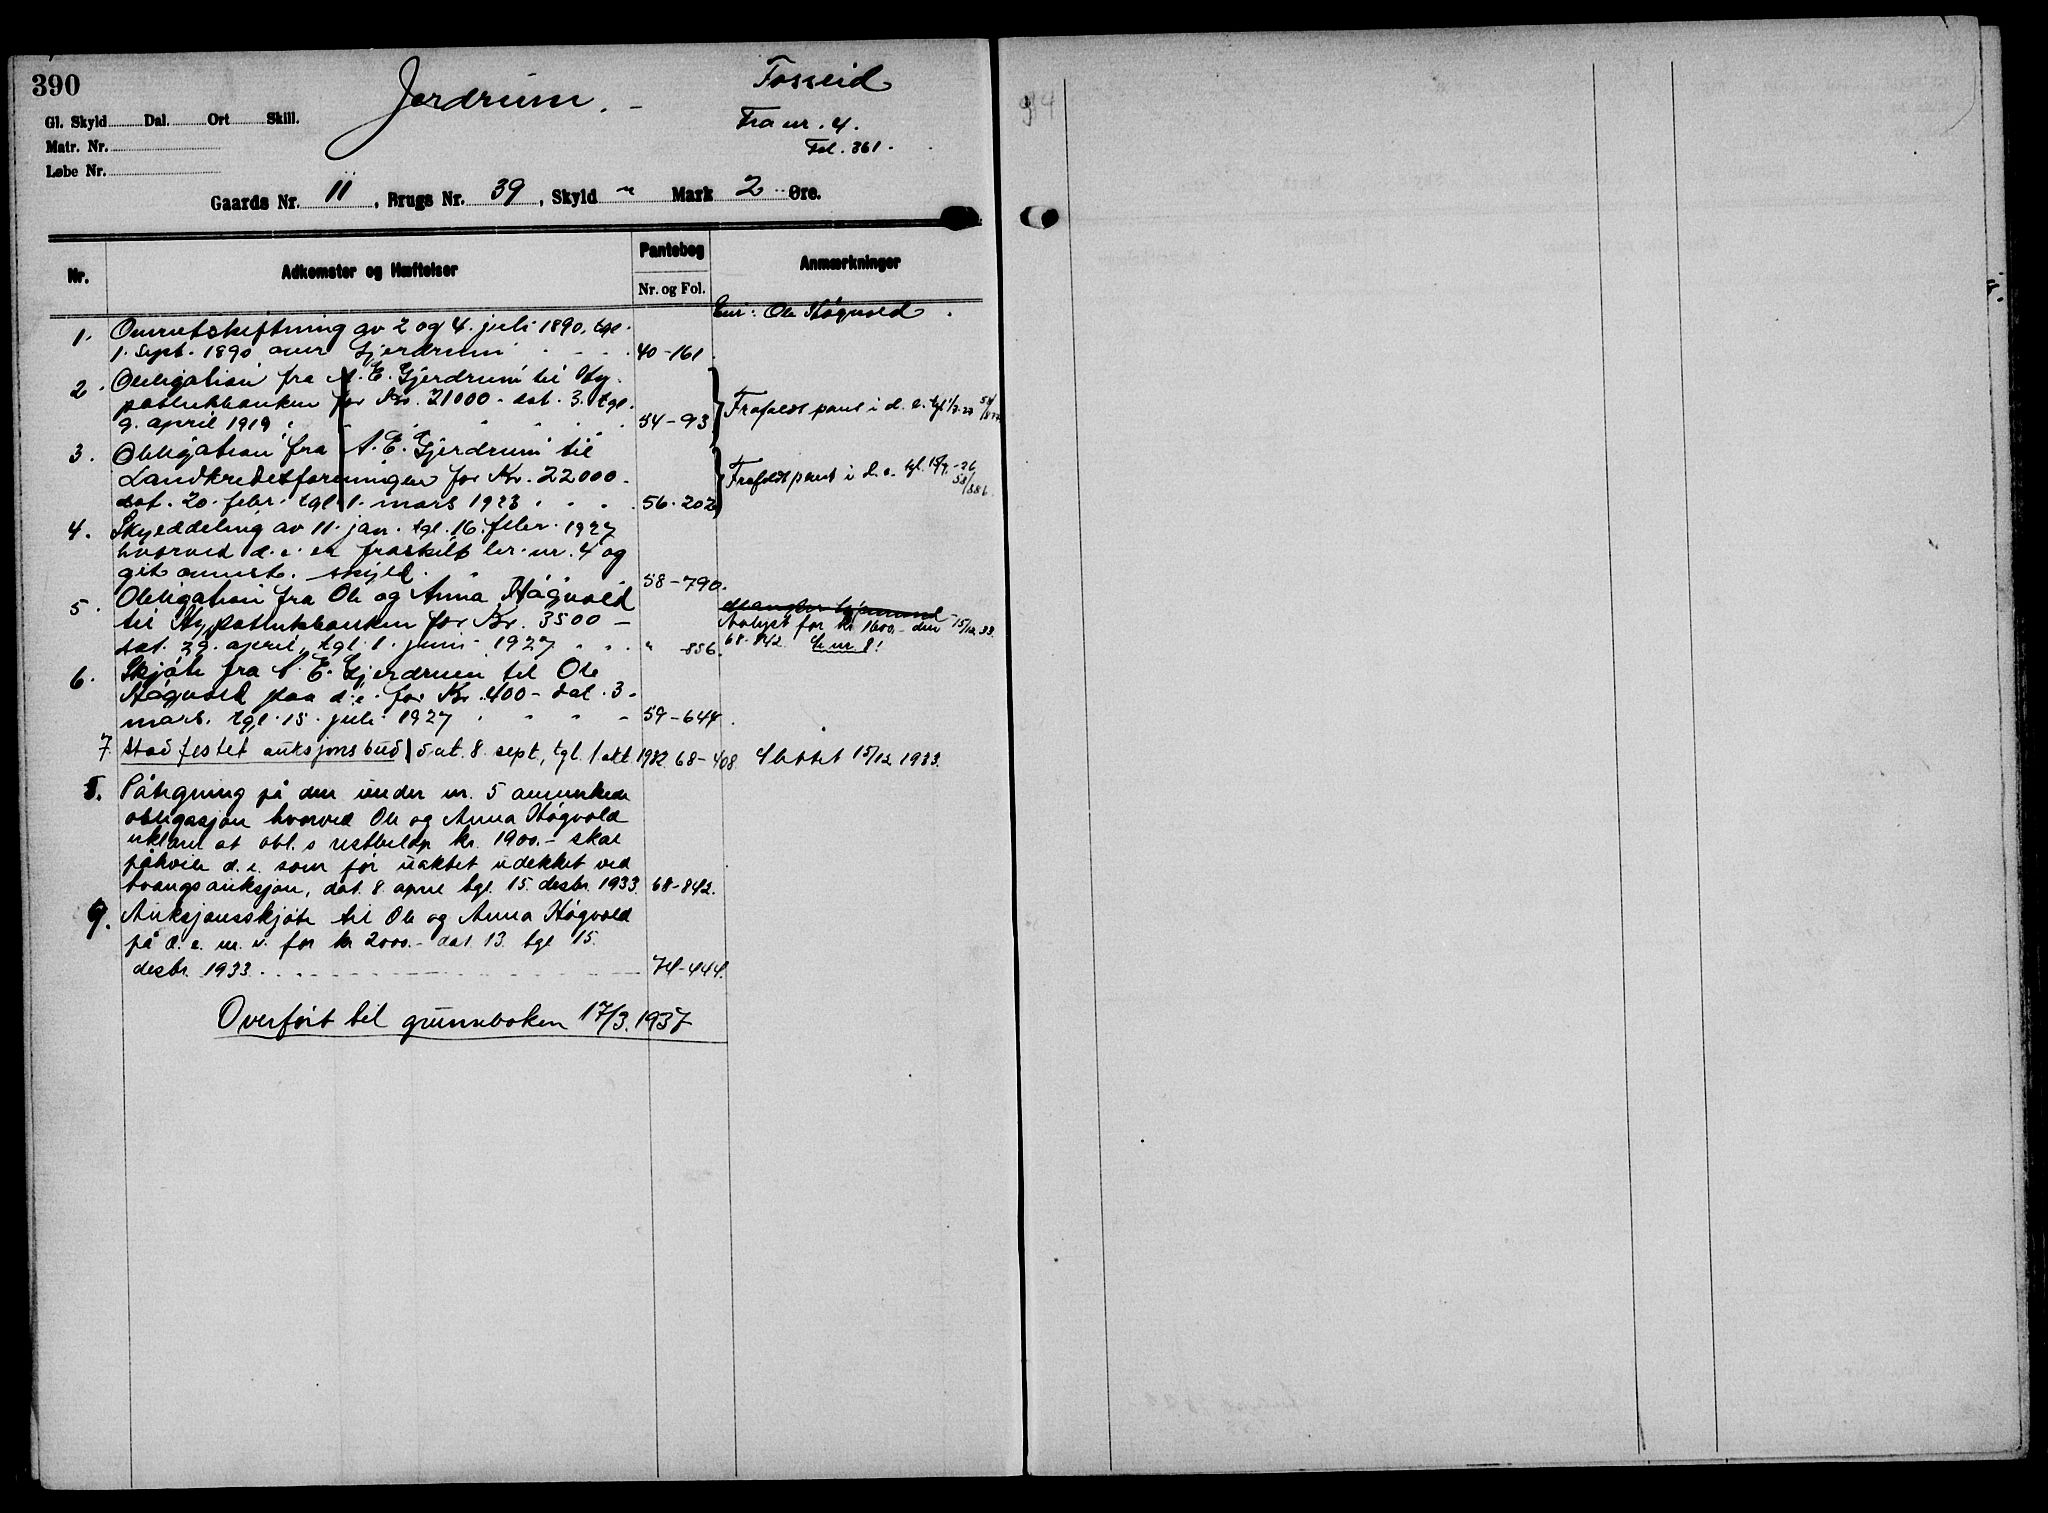 390
Jerdrum. - Fosseid
Fra nr. 4.
Fol. 361.
Gl. Skyld Dal. Ort Skill.
Matr. Nr.
Løbe Nr.
Gaards Nr. 11, Brugs Nr. 39, Skyld " Mark 2 Øre.
Nr. Adkomster og Hæftelser Pantebog Anmærkninger
Nr. og Fol.
Eier: Ole Høgvold.
1. Omretskiftning av 2 og 4. juli 1890, tgl.
1. sept. 1890 over Gjerdrum 40-161
2. Obligation fra A. E. Gjerdrum til Hy-
potekbanken for Kr. 21000 - dat. 3. tgl.
9. april 1919 54-93 Frafaldt pant i d. e.
3. Obligation fra A. E. Gjerdrum til
Landkreditforeningen for Kr. 22000.
dat. 20. febr. tgl. 1. mars 1923 56-202 Frafaldt pant i d. e. tgl.
4. Skylddeling av 11. jan. tgl. 16. febr. 1927
hvorved d. e. er fraskilt br. nr. 4 og
git anmst. skyld. 58-790.
5. Obligation fra Ole og Anna Høgvold
til Hypotekbanken for Kr. 3500 -
dat. 29. april, tgl. 1. juni 1927 " -856.
Avlyst for kr 1600.- den 15/12 33.
68-842 Se nr 8!
6. Skjøte fra A. E. Gjerdrum til Ole
Høgvold paa d. e. for Kr. 400 - dat. 3.
mars. tgl. 15. juli 1927 59-644.
7. Stadfestet auksjonsbud dat. 8. sept, tgl. 1 okt 1932 68-408. Slettet 15/12 1933.
8. Påtegning på den under nr. 5 anmerkede
obligasjon hvorved Ole og Anna Høgvold
erklærer at obl.s restbeløp kr. 1900.- skal
påhvile d. e. som før uaktet udekket ved
tvangsauksjon, dat. 8. april tgl. 15. desbr. 1933. 68-842.
9. Auksjonsskjøte til Ole og Anna Høgvold
på d. e. m. v. for kr 2000.- dat. 13. tgl 15.
desbr. 1933. 74-444.
Overført til grunnboken 17/3. 1937